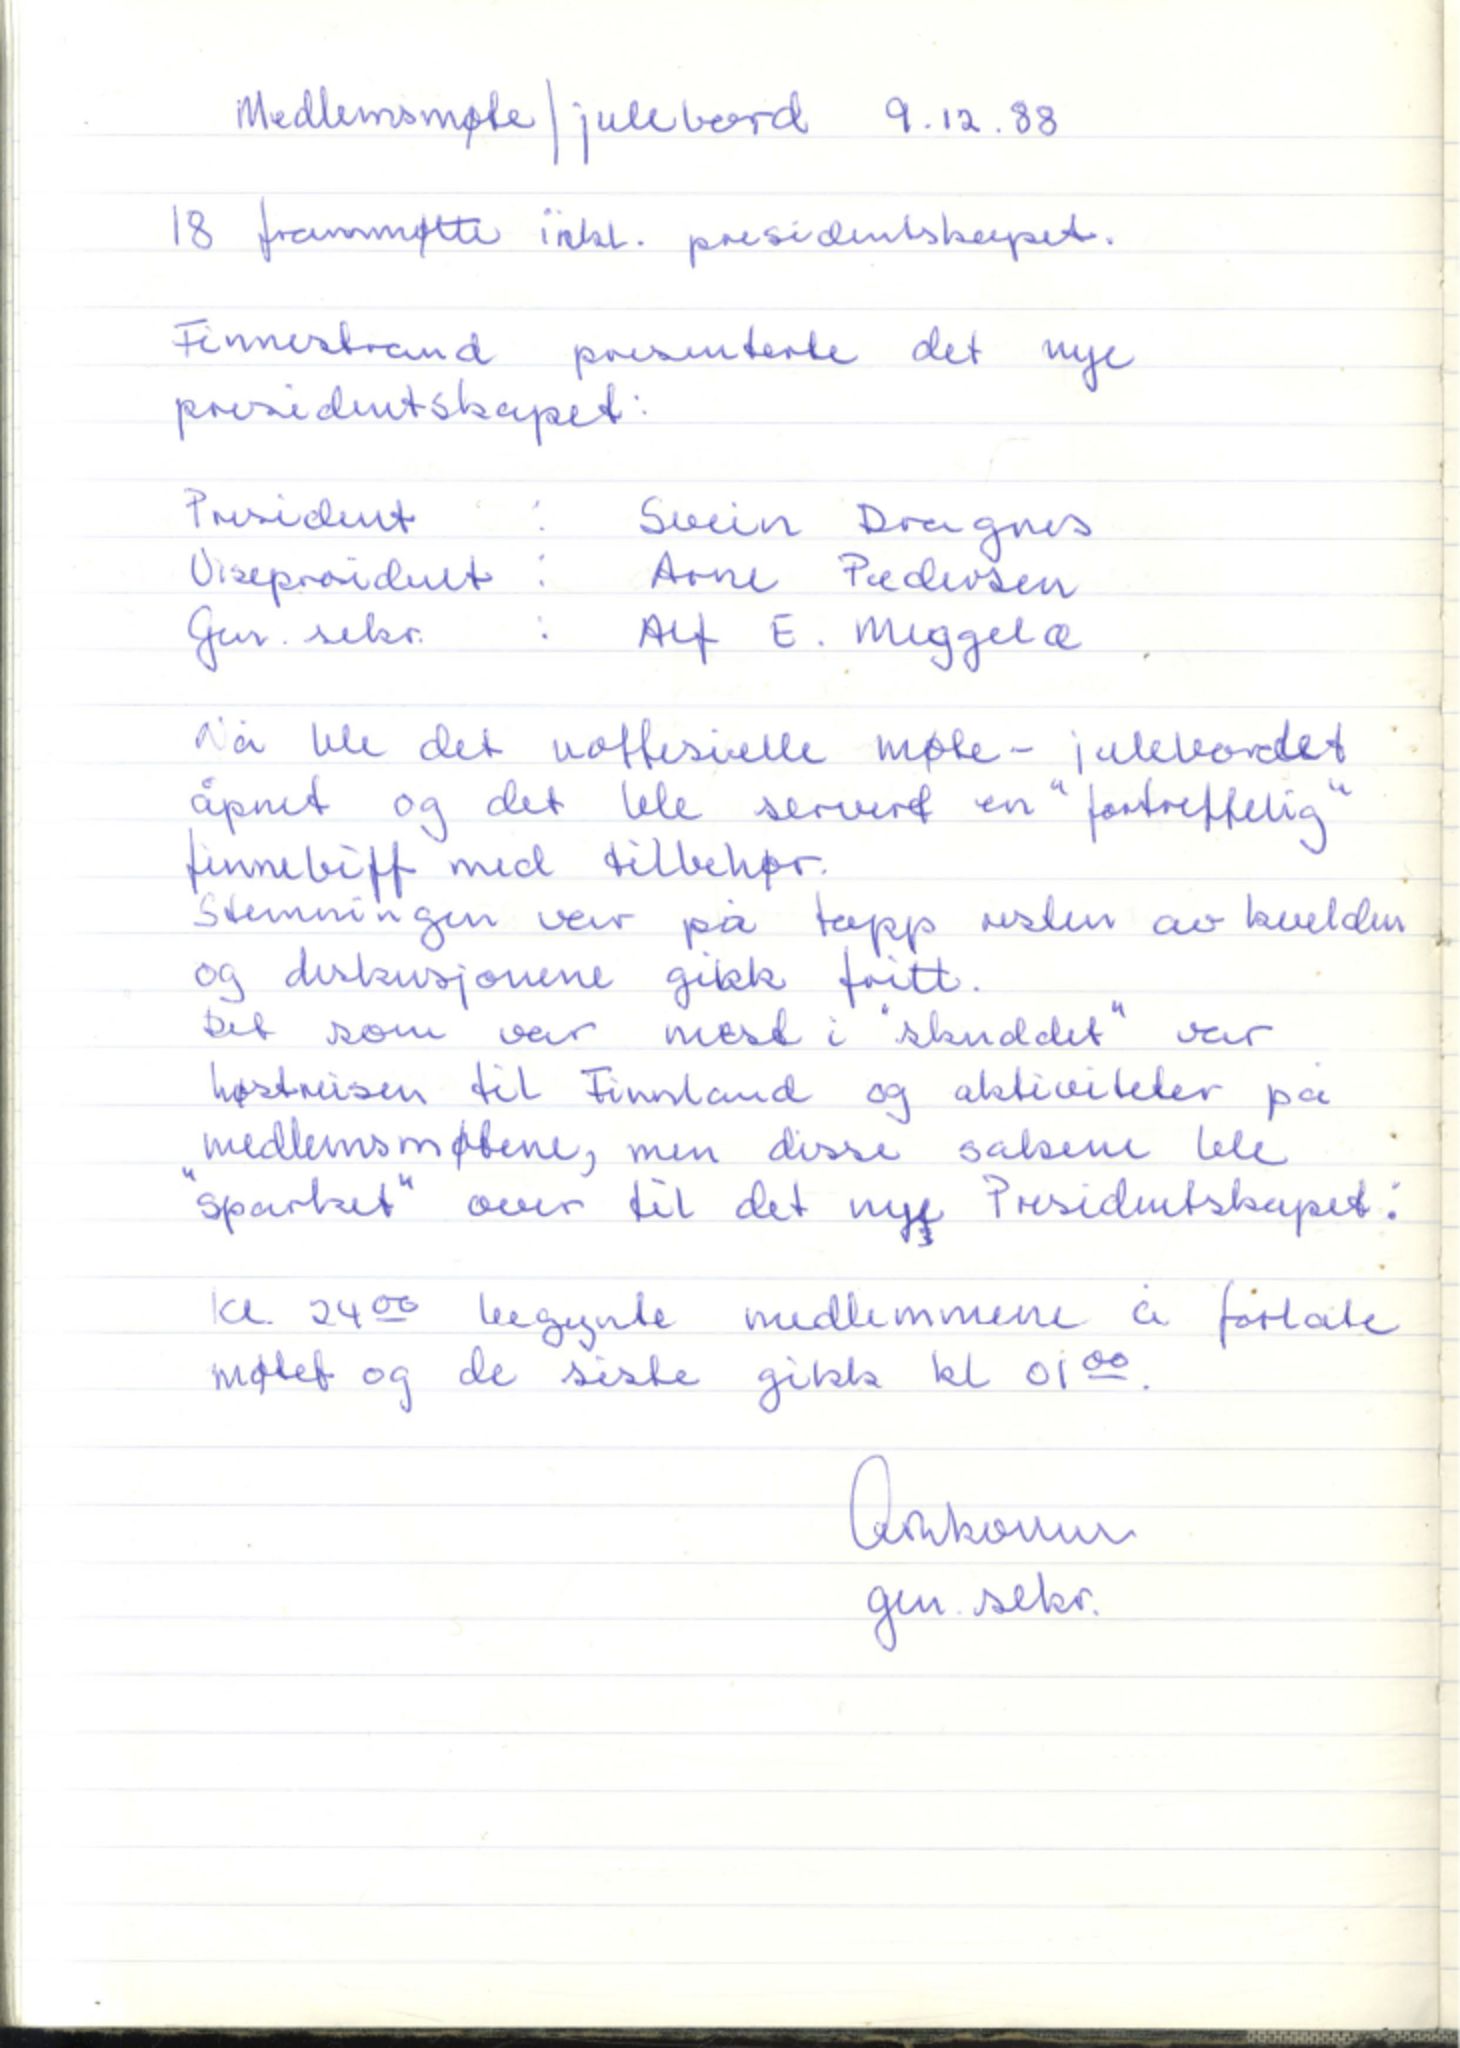 Medlemsmøte/julebord 9.12.88
18 frammøtte inkl. presidentskapet.
Finnestrand presenterte det nye
presidentskapet:
President : Svein Dragnes
Visepresident : Arne Pedersen
Gen. sekr. : Alf E. Meggelæ
Nå ble det uoffesielle møte - julebordet
åpnet og det ble servert en "fortreffelig"
finnebiff med tilbehør.
Stemningen var på topp resten av kvelden
og diskusjonene gikk fritt.
Det som var mest i "skuddet" var
høstreisen til Finnland og aktiviteter på
medlemsmøtene, men disse sakene ble
"sparket" over til det nye Presidentskapet.
Kl. 24⁰⁰ begynte medlemmene å forlate
møtet og de siste gikk kl 01⁰⁰.
gen. sekr.